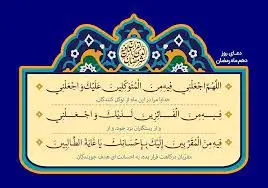 دعای روز
دهم ماه رمضان
اللهم اجعلنی فیه من المتوکلین علیک واجعلنی
خدایا مرا در این ماه از توکل کنندگان
فیه من الفائزین لدیک واجعلنی
و از رستگاران نزد خود، و از
فیه من المقربین إلیک بإحسانک یا غایة الطالبین
مقربان درگاهت قرار بده، به احسانت ای هدف جویندگان